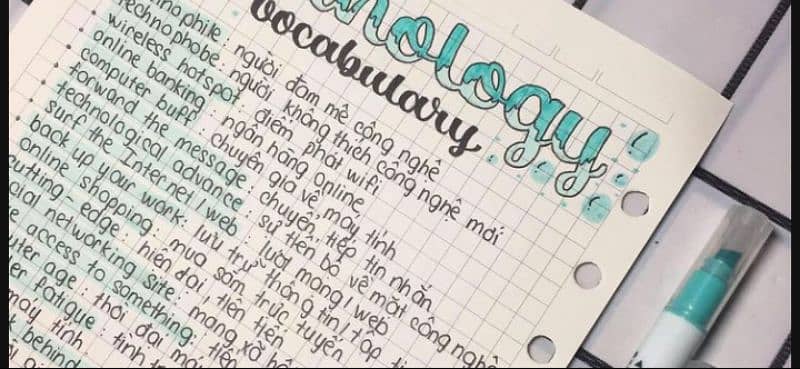 nology
vocabulary
nophile: người đam mê công nghệ
echnophobe: người không thích công nghệ mới
wireless hotspot: điểm phát wifi
online banking: ngân hàng online
computer buff: chuyên gia về máy tính
forward the message: chuyển tiếp tin nhắn
technological advance: sự tiến bộ về mặt công nghệ
surf the Internet/web: lướt mạng/web
back up your work: lưu trữ thông tin/tập
online shopping: mua sắm trực tuyến
cutting edge: hiện đại, tiên tiến
cial networking site: mạng xã
access to something: tiếp
uter age: thời đại máy
er fatigue: tình
máy tính
behind